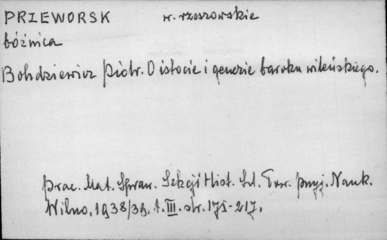 PRZEWORSK w. rzeszowskie
bóżnica
Bohdziewicz Piotr. O istocie i genezie baroku wileńskiego.
Prac. Mat. Spraw. Sekcji Hist. Szt. Tow. Przyj. Nauk.
Wilno, 1938/39, t. III. str. 175-217.